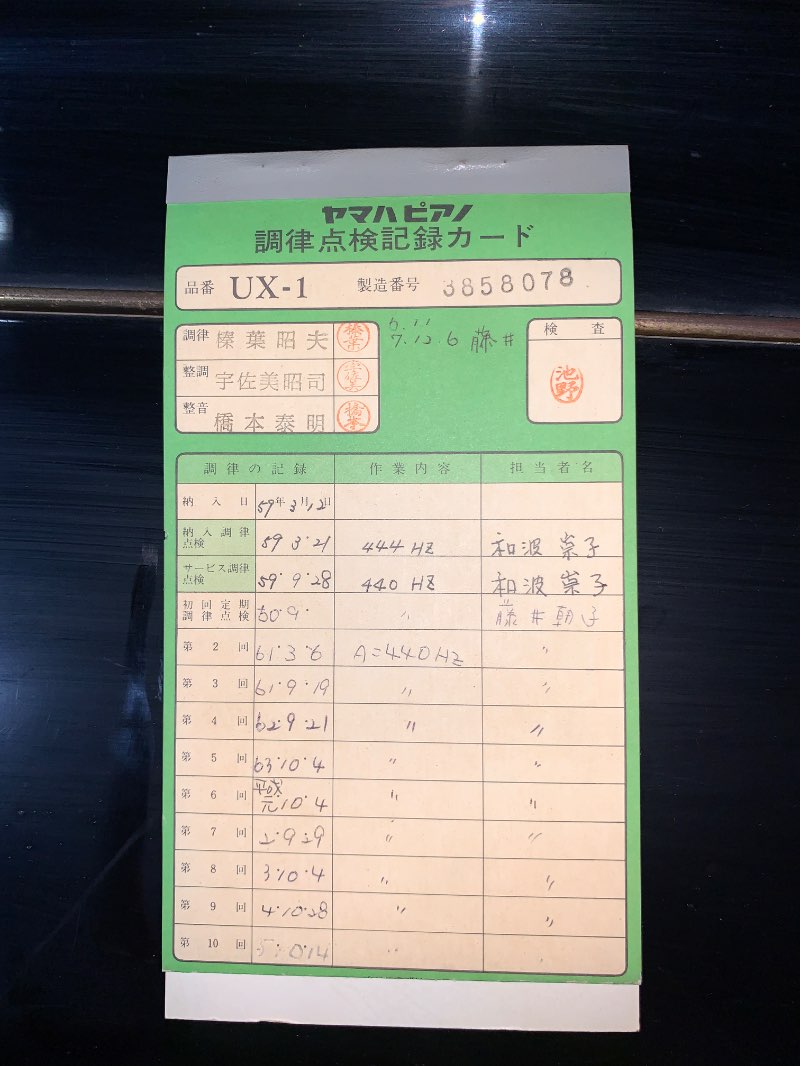 ヤマハピアノ
調律点検記録カード
品番 UX-1 製造番号 3858078
調律 榛葉昭夫 榛葉
整調 宇佐美昭司
整音 橋本泰明
6.11
7.12.6 藤井
検査
池野
調律の記録 作業内容 担当者名
納入日 59年3月12日
納入調律点検 59 3・21 444 HZ 和波 崇子
サービス調律点検 59・9・28 440 HZ 和波 崇子
初回定期調律点検 60.9. 〃 藤井朝子
第2回 61・3・6 A=440HZ 〃
第3回 61・9・19 〃 〃
第4回 62・9・21 〃 〃
第5回 63・10・4 〃 〃
第6回 平成元10・4 〃 〃
第7回 2・9・29 〃 〃
第8回 3・10・4 〃 〃
第9回 4・10・28 〃 〃
第10回 5・10・14 〃 〃